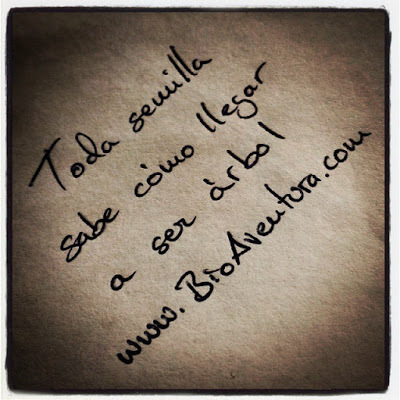 Toda semilla
sabe cómo llegar
a ser àrbol
www.BioAventura.com